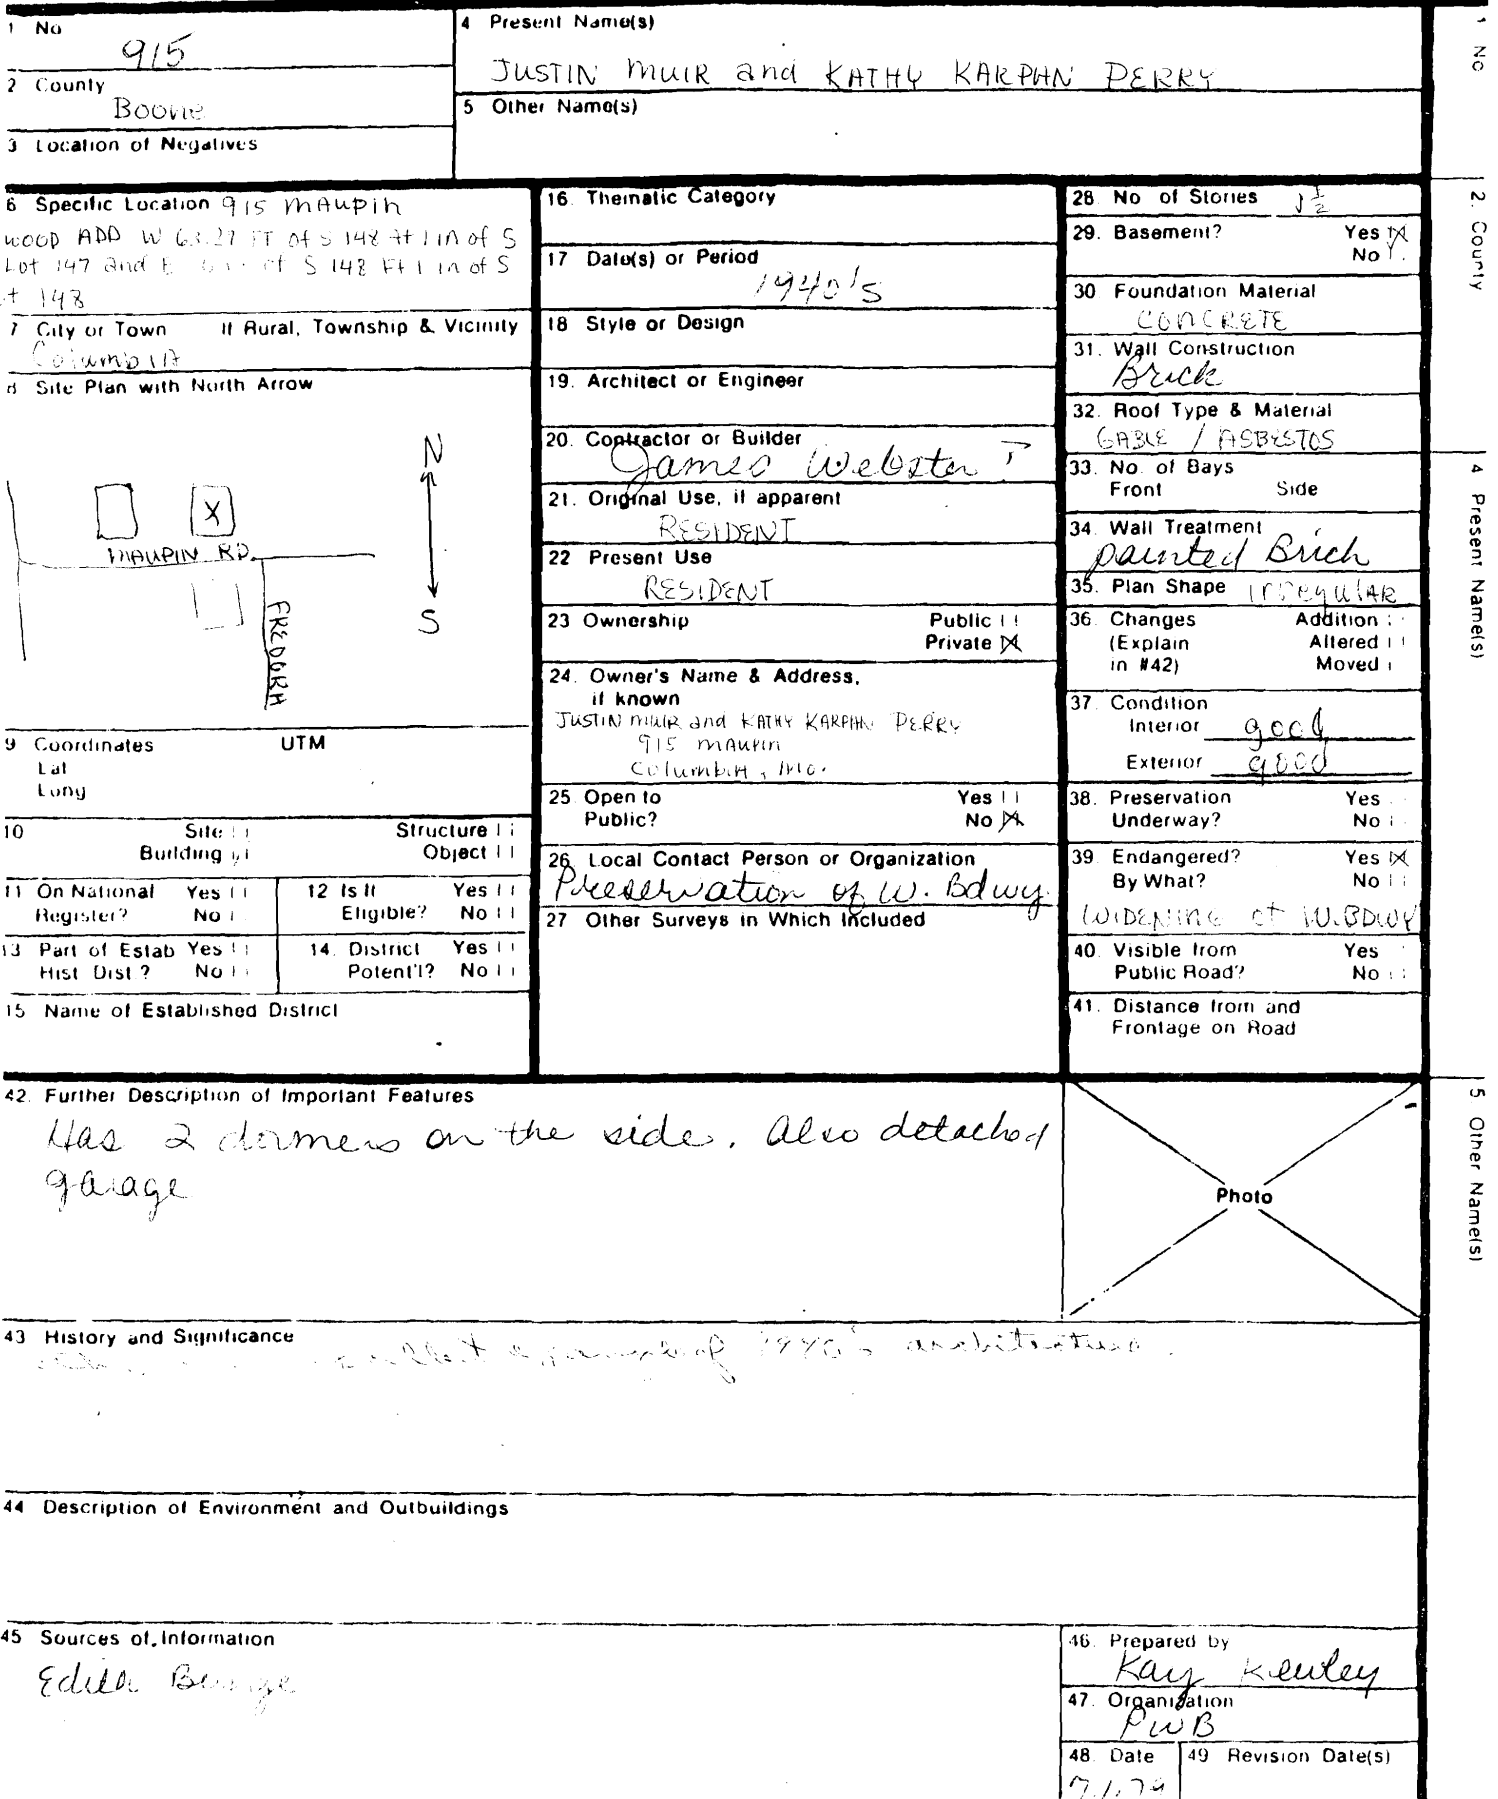 1 No
915
2 County
Boone
3 Location of Negatives
4 Present Name(s)
JUSTIN MUIR and KATHY KARPAN PERRY
5 Other Name(s)
6 Specific Location 915 MAUPIN
WOOD ADD W 63.27 FT of S 148 ft 1 in of S
Lot 147 and E of S 148 Ft 1 in of S
148
7 City or Town If Rural, Township & Vicinity
Columbia
8 Site Plan with North Arrow
N
X
MAUPIN RD.
S
FREDORA
9 Coordinates UTM
Lat
Long
10 Site Structure
Building Object
11 On National Register? Yes No
12 Is It Eligible? Yes No
13 Part of Estab Hist Dist? Yes No
14. District Potent'l? Yes No
15 Name of Established District
16. Thematic Category
17 Date(s) or Period
1940's
18 Style or Design
19. Architect or Engineer
20. Contractor or Builder
James Webster ?
21. Original Use, if apparent
RESIDENT
22 Present Use
RESIDENT
23 Ownership Public
Private X
24. Owner's Name & Address,
if known
JUSTIN MUIR and KATHY KARPAN PERRY
915 MAUPIN
Columbia, Mo.
25 Open to Yes
Public? No X
26. Local Contact Person or Organization
Preservation of W. Bdwy.
27 Other Surveys in Which Included
28. No of Stories 1 1/2
29. Basement? Yes X
No
30 Foundation Material
CONCRETE
31. Wall Construction
Brick
32. Roof Type & Material
GABLE / ASBESTOS
33. No. of Bays
Front Side
34. Wall Treatment
painted Brick
35. Plan Shape IrregulAR
36. Changes Addition
(Explain Altered
in #42) Moved
37. Condition
Interior good
Exterior good
38. Preservation Yes
Underway? No
39. Endangered? Yes X
By What? No
WIDENING of W.BDWY
40. Visible from Yes
Public Road? No
41. Distance from and
Frontage on Road
42. Further Description of Important Features
Has 2 dormers on the side. Also detached
garage
Photo
43 History and Significance
excellent example of 1940's architecture.
44 Description of Environment and Outbuildings
45 Sources of Information
Edith
46. Prepared by
Kay
47. Organization
PWB
48. Date
49 Revision Date(s)
1 No
2. County
4 Present Name(s)
5 Other Name(s)